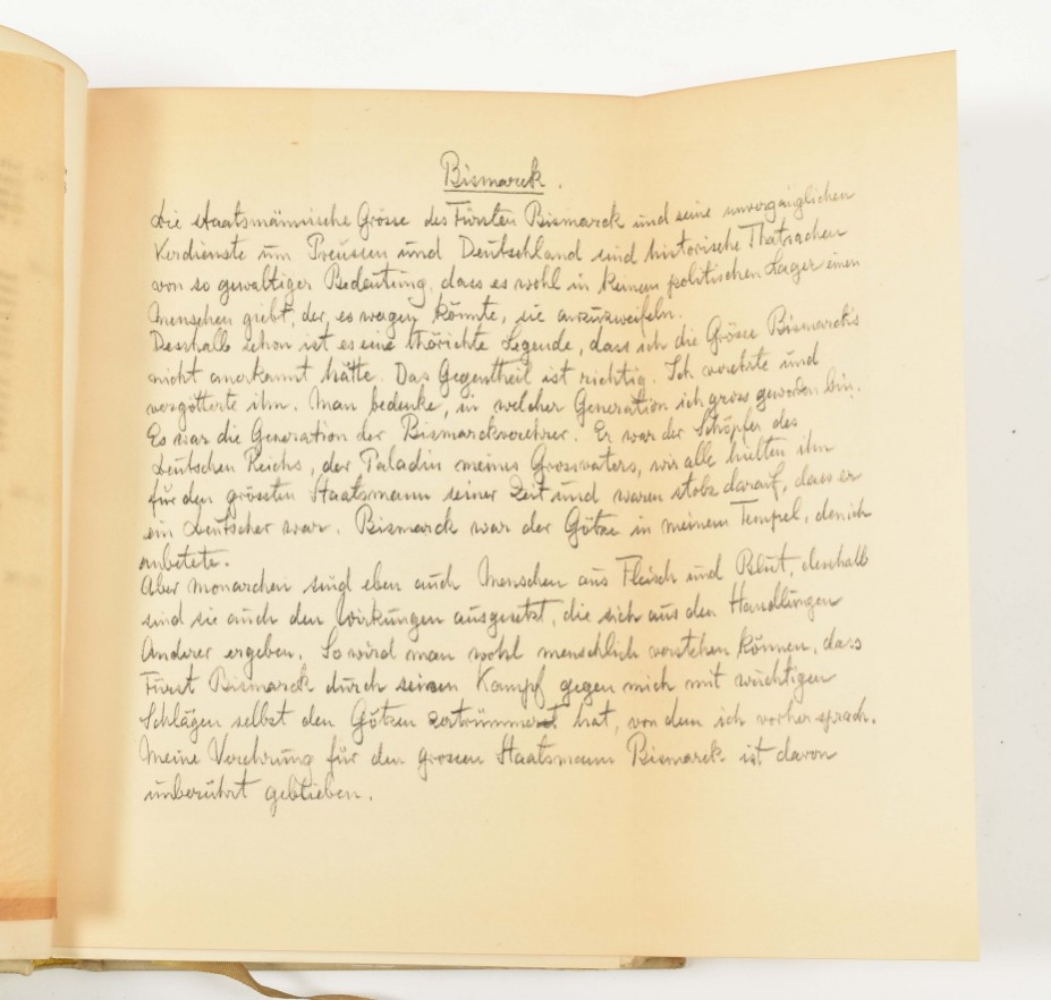 Bismarck.
Die staatsmännische Grösse des Fürsten Bismarck und seine unvergänglichen
Verdienste um Preussen und Deutschland sind historische Thatsachen
von so gewaltiger Bedeutung, dass es wohl in keinem politischen Lager einen
Menschen giebt, der es wagen könnte, sie anzuzweifeln.
Desshalb schon ist es eine thörichte Legende, dass ich die Grösse Bismarck's
nicht anerkannt hätte. Das Gegentheil ist richtig. Ich verehrte und
vergötterte ihn. Man bedenke, in welcher Generation ich gross geworden bin.
Es war die Generation der Bismarckverehrer. Er war der Schöpfer des
Deutschen Reichs, der Paladin meines Grossvaters, wir alle hielten ihn
für den grössten Staatsmann seiner Zeit und waren stolz darauf, dass er
ein Deutscher war. Bismarck war der Götze in meinem Tempel, den ich
anbetete.
Aber Monarchen sind eben auch Menschen aus Fleisch und Blut, deshalb
sind sie auch den Wirkungen ausgesetzt, die sich aus den Handlungen
Anderer ergeben. So wird man wohl menschlich verstehen können, dass
Fürst Bismarck durch seinen Kampf gegen mich mit wuchtigen
Schlägen selbst den Götzen zertrümmert hat, von dem ich vorher sprach.
Meine Verehrung für den grossen Staatsmann Bismarck ist davon
unberührt geblieben.